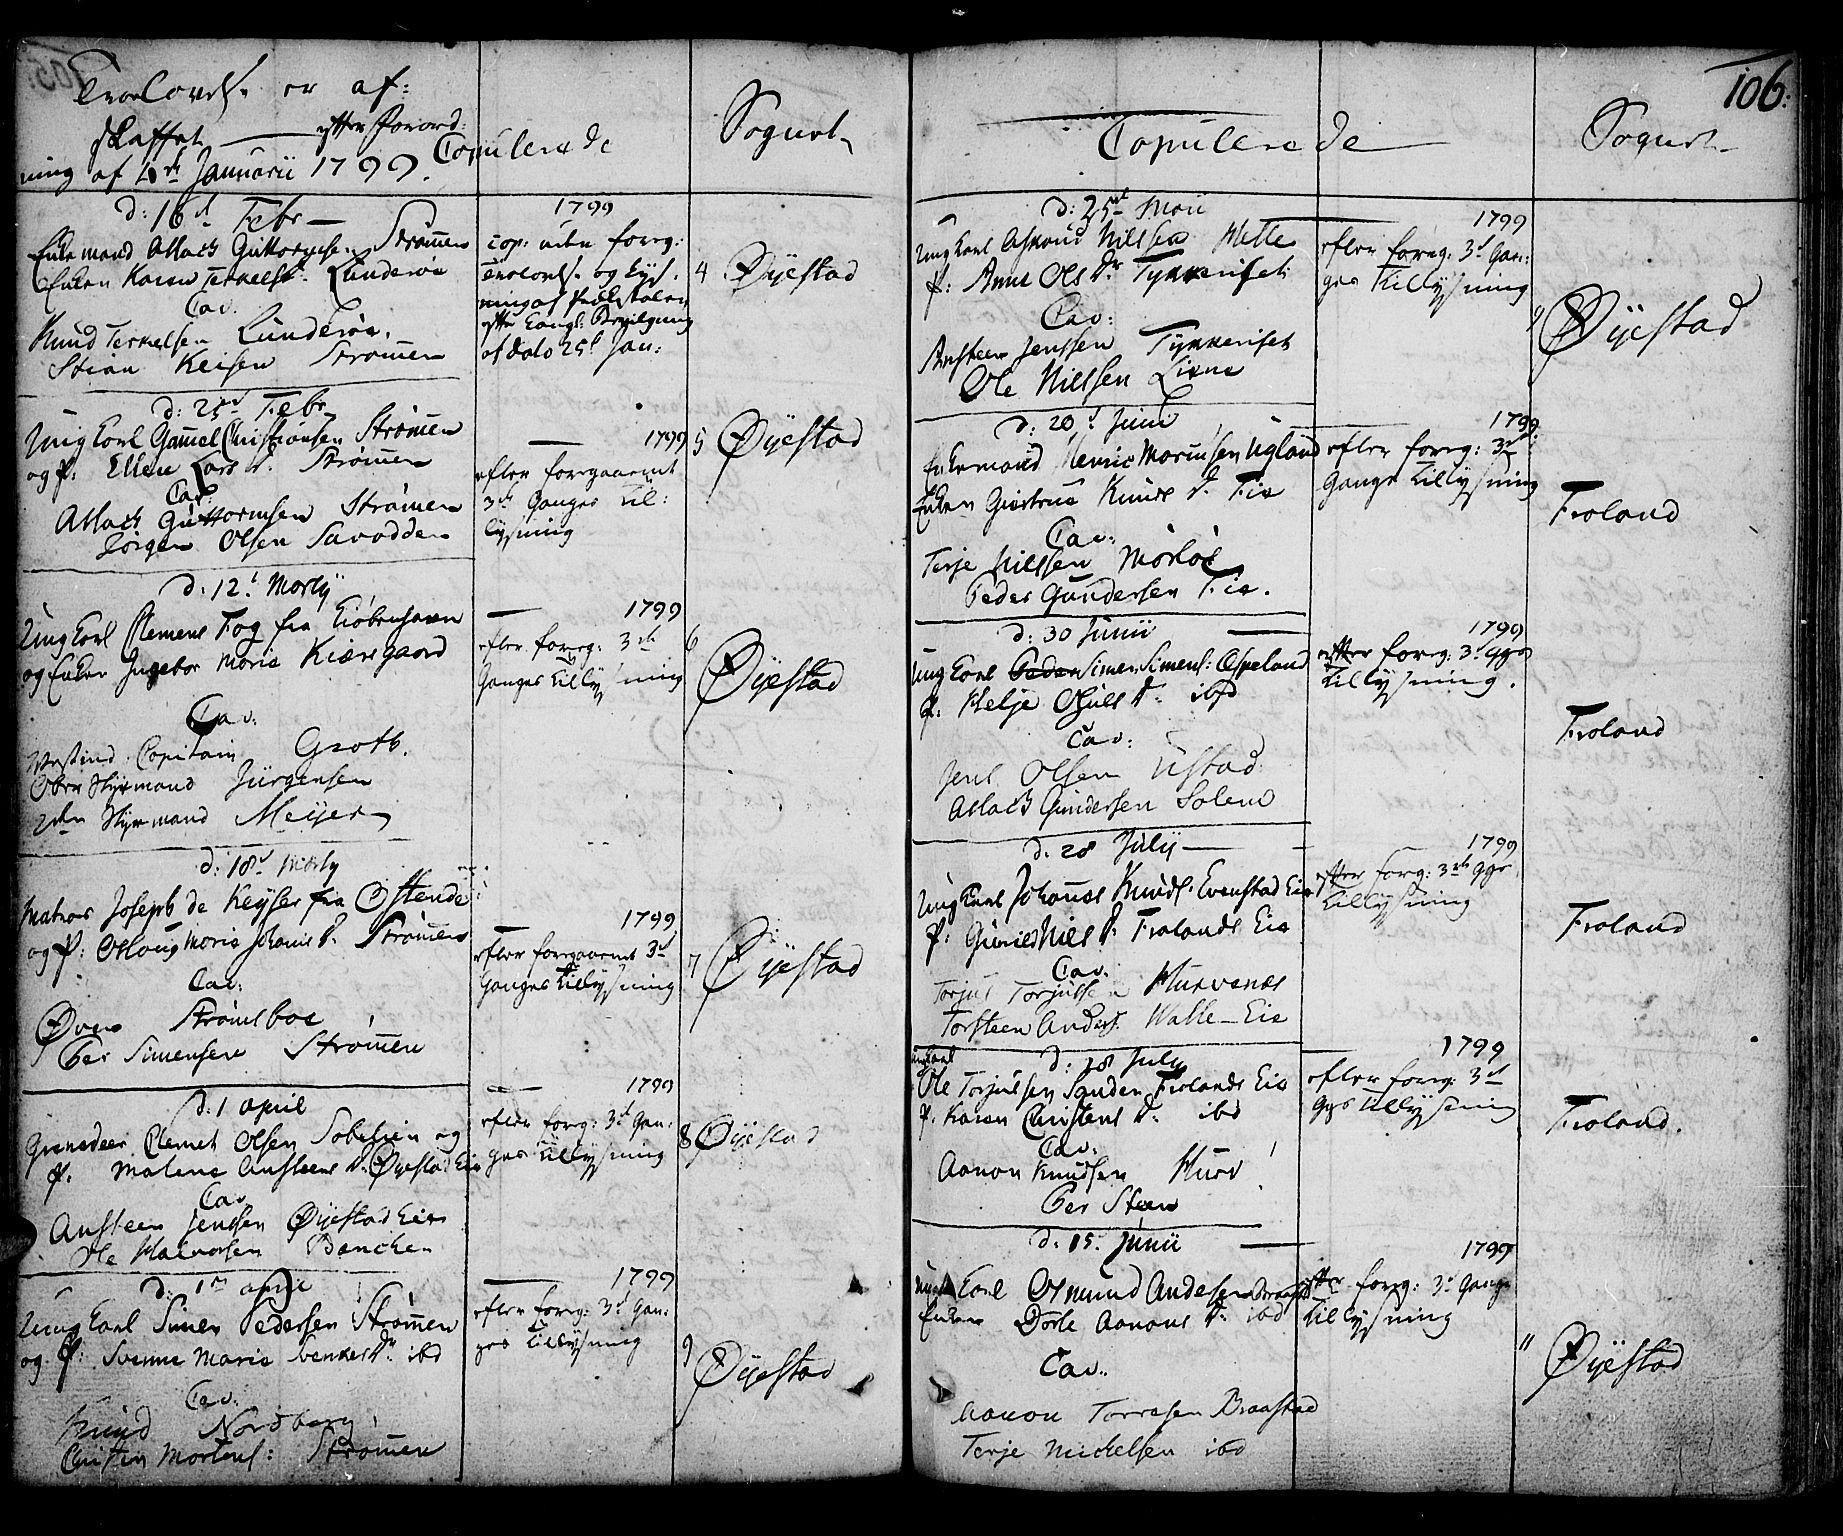 Trolovelse er af:
skaffet — efter Forord:
ning af 4de Januarii 1799.
Copulerede
Sognet
d: 16d Febr —
Enkemand Aslach Guttormsen Strømen
Enken Karen Terkelsd: Lunderøe
Cav.
Knud Terkelsen Lunderøe.
Stian Keisen Strømen
1799
cop: uden foreg:
Trolovelse og Lys-
ning af Prædikestolen
efter Kongl: Bevilgning
af dato 25d Jan:
4 Øyestad
d: 25d Febr
Ung Karl Gamel Christiansen Strømen
og P: Ellen Lars D. Strømen
Cav:
Aslach Guttormsen Strømen
Jørgen Olsen Savodden
1799
efter foregaaende
3de Ganges Til:
lysning
5 Øyestad
d: 12t Martij
Ung Karl Clemens Fog fra Kiøbenhavn
og Enken Ingebor Maria Kiærgaard
Cav:
Vestind: Capitain Groth.
Over Styrmand Jürgensen
2den Styrmand Meyer
1799
efter foreg: 3de
Ganges Tillysning
6
Øyestad
d: 18d Martij
Matros Joseph de Keyser fra Ostende
og P: Aslaug Maria Johanis D. Strømen
Cav:
Øven Strømsboe
Per Simensen Strømen
1799
efter foregaaende 3d
Ganges Tillysning
7 Øyestad
d: 1 april
Grenadeer Clemet Olsen Sobesien og
P. Malene Ansteens D. Øyestad Eie
Cav
Ansteen Jenssen Øyestad Eie
Ole Halvorsen Bancken
1799
efter foreg: 3d Gan:
ges Tillysning
8 Øyestad
d: 1m april
Ung Karl Simen Pedersen Strømen
og P: Svenne Maria Svenkes Dr ibd
Cav:
Knud Nordberg
Christen Mortens: Strømen
1799
efter foreg: 3d Gan:
ges Tillysning
9
Øyestad
106:
Copulerede
Sognet
d: 25d Maii
Ung Karl Asmund Nilsen Helle
P: Anne Ols Dr Tykkeriset
Cav:
Ansteen Jenssen Tykkeriset
Ole Nielsen Liene
1799
efter foreg: 3d Gan:
ges Tillysning
" Øyestad
d: 20d Junii
Enkemand Henric Marcusen Ugland
Enken Giertrue Knuds D. Fie
Cav:
Terje Nielsen Mørløe
Peder Gundersen Fie.
1799
efter foreg: 3de
Gange Tillysning
Froland
d: 30 Junii
Ung Karl Peder Simen Simens: Espeland
P: Helje Ojuls D. ibd
Cav:
Jens Olsen Ustad
Aslach Gundersen Solene
1799
efter foreg: 3d gges
Tillysning.
Froland
d: 28 Julij
Ung Karl Johannes Knuds. Evenstad Eie
P: Gunild Niels D. Frolands Eie
Cav.
Torjus Torjusen Husvenes
Torsteen Anders. Walle-Eie
1799
efter foreg: 3de Ggs.
Tillysning
Froland
d: 28 July
Ung Karl
Ole Torjulsen Sanden Frolands Eie
P. Karen Christens D. ibd
Cav:
Aanon Knudsen Hurv
Per Steen
1799
efter foreg: 3d
Ggs Tillysning
Froland.
d. 15. Junii
Ung Karl Osmund Andersen Braastad
Enken Dorte Aanons D. ibd
Cav:
Aanon Torresen Braastad
Terje Michelsen ibd
1799
efter foreg: 3d Gange
Tillysning
" Øyestad